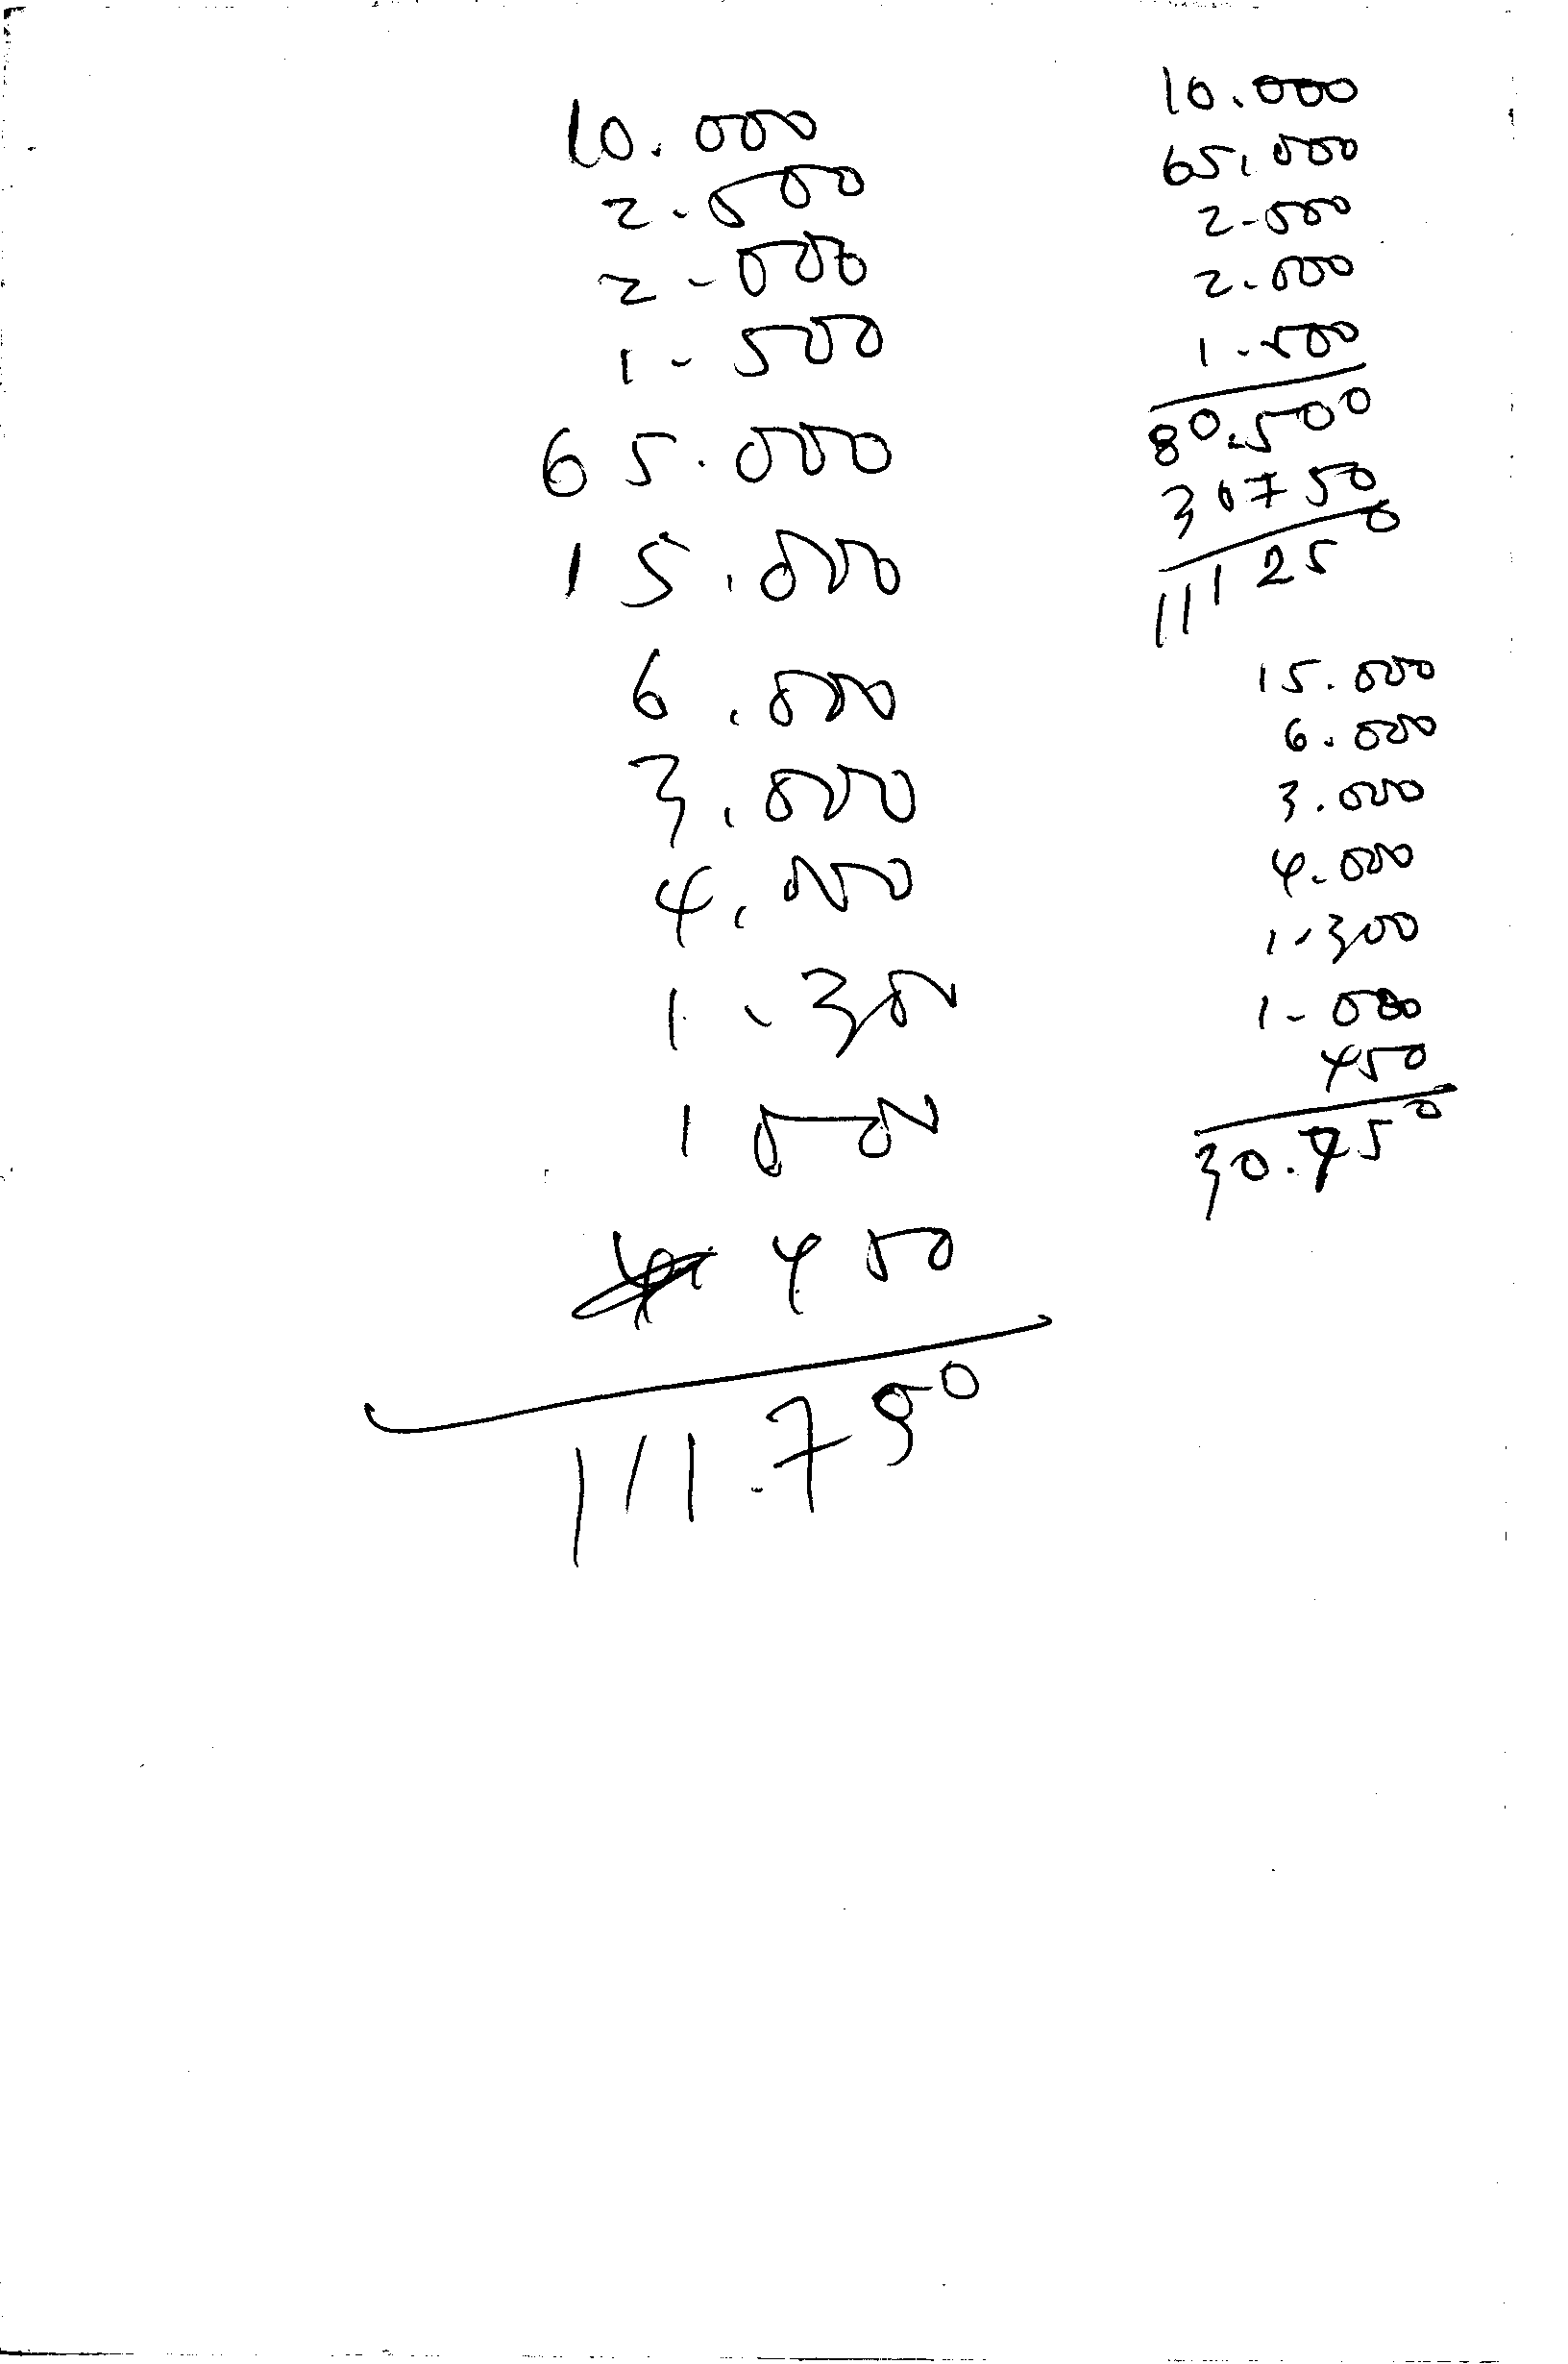 10.000
2.500
2.000
1.500
65.000
15.000
6.000
3.000
4.000
1.300
1000
450
111.750
10.000
65.000
2.000
2.000
1.500
80.500
30750
111250
15.000
6.000
3.000
4.000
1.300
1.000
450
30.750